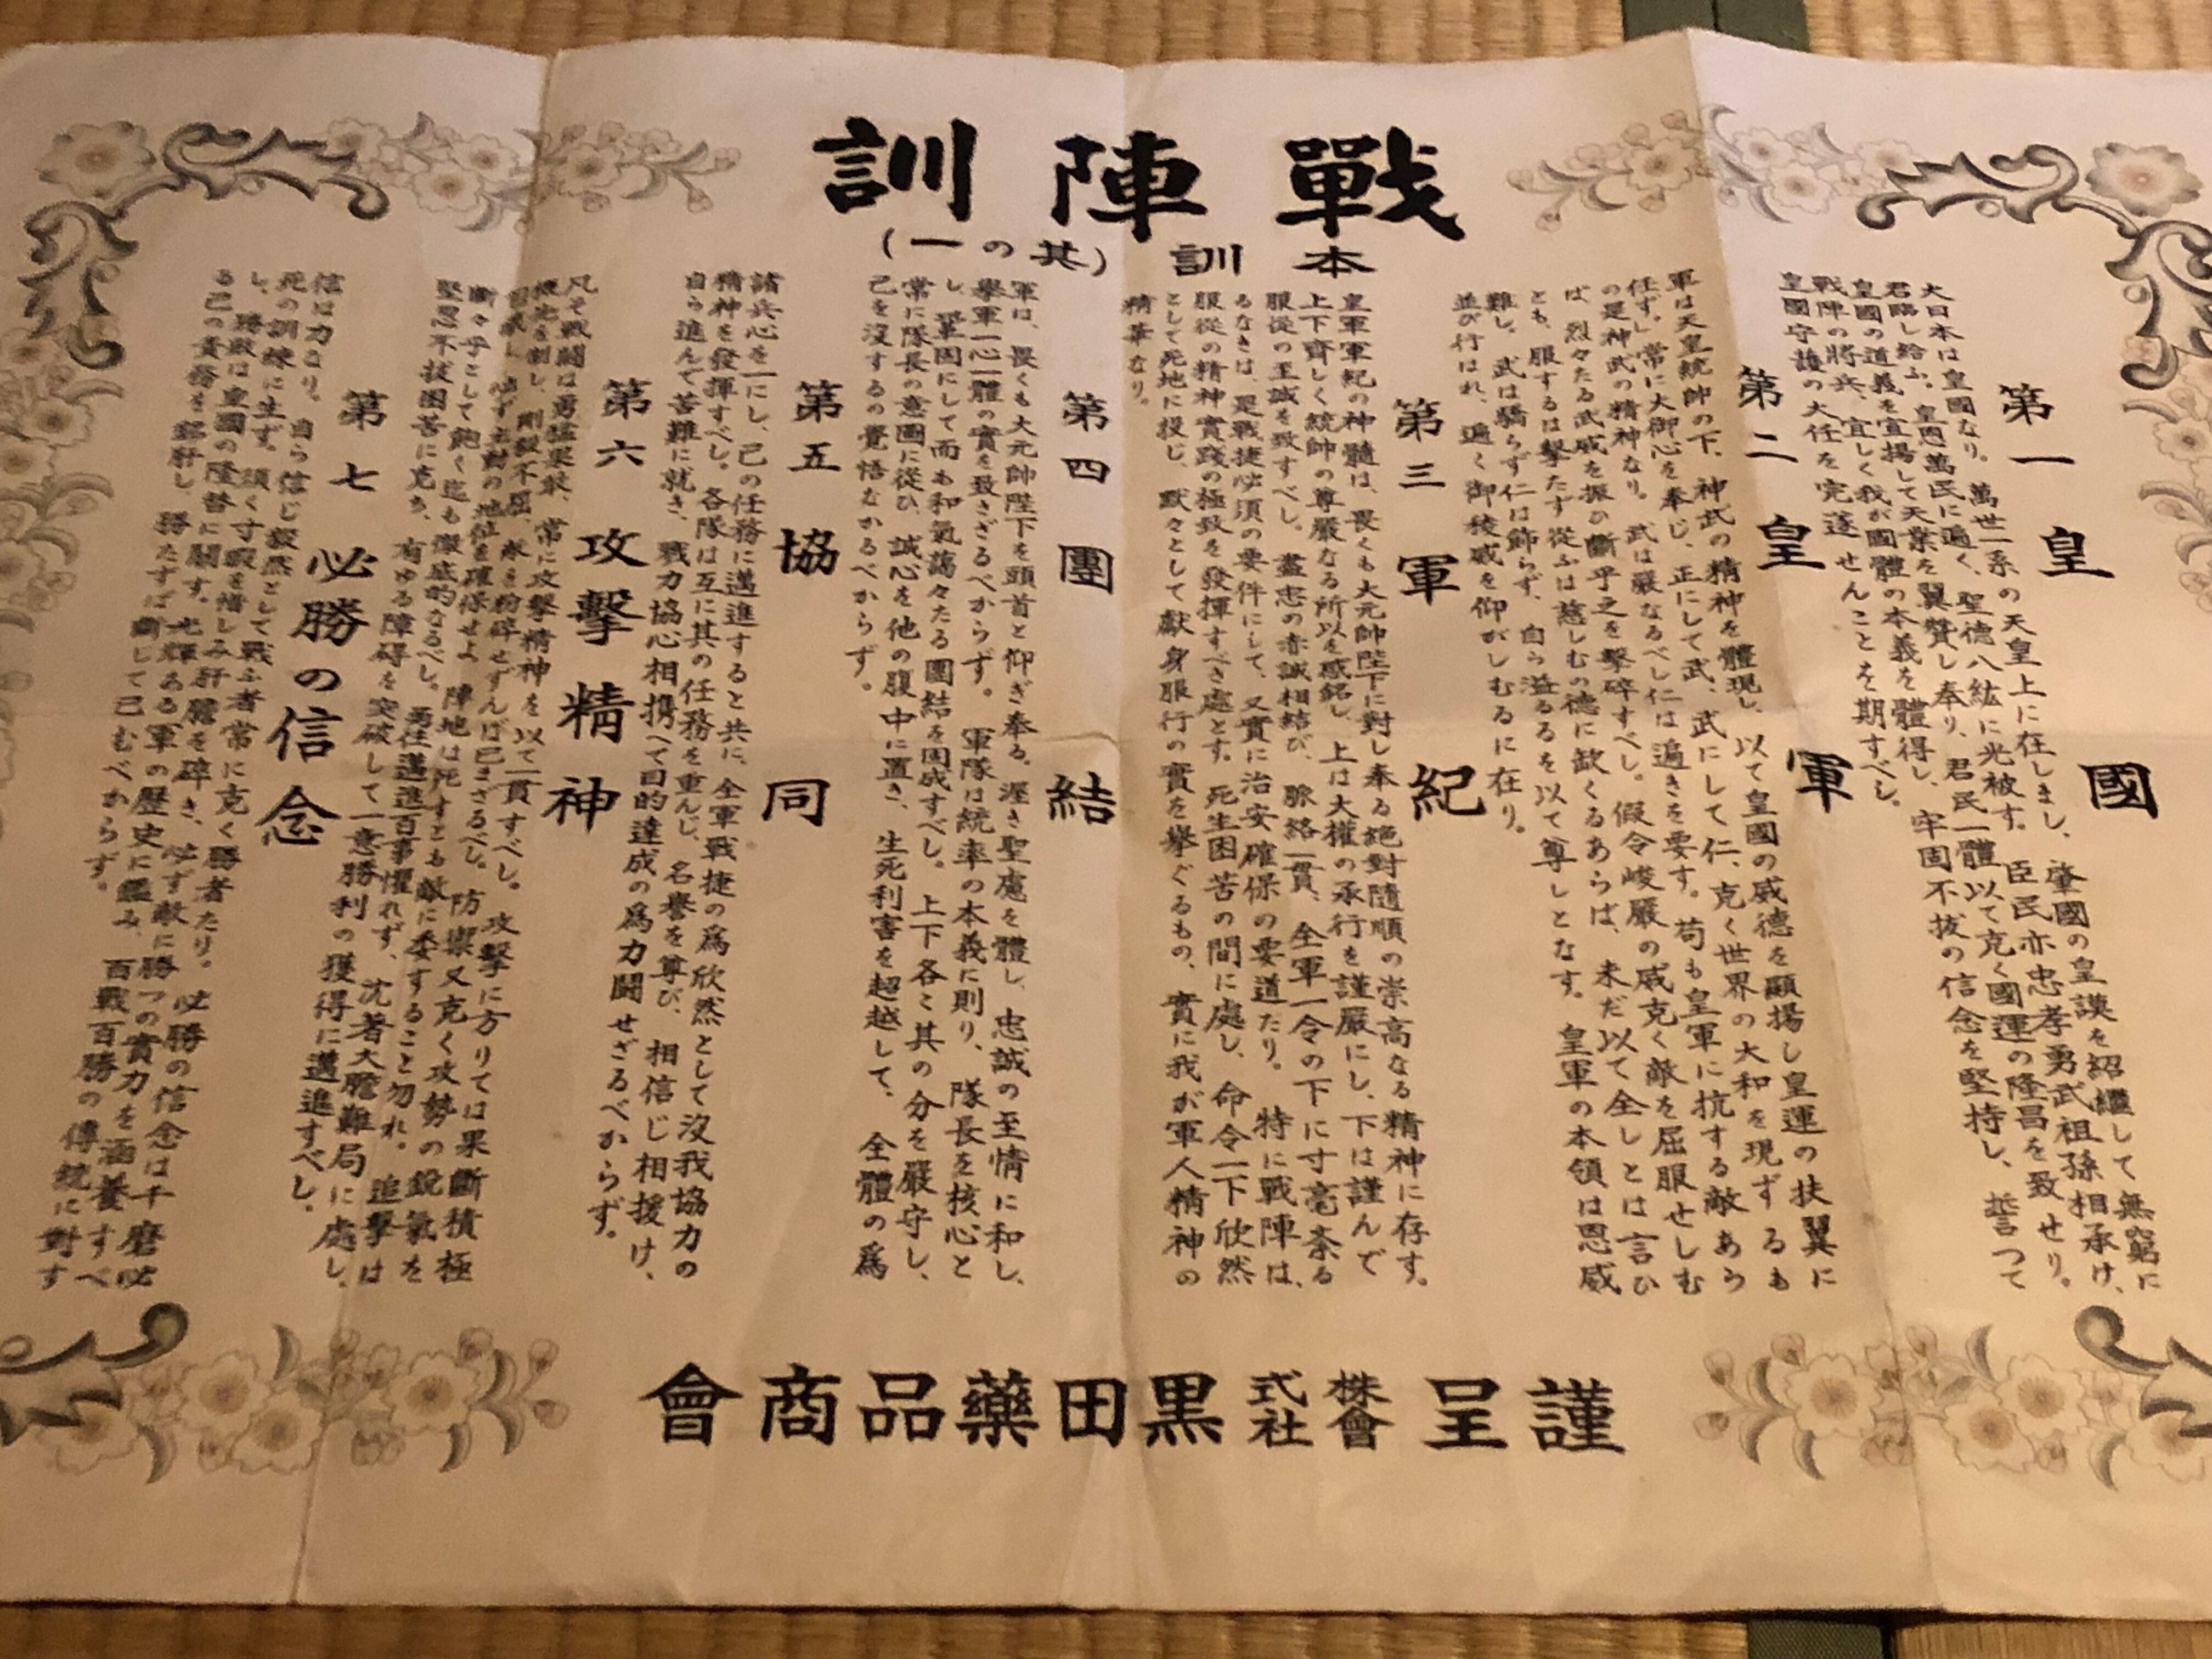 戰陣訓
本訓（其の一）
第一 皇國
大日本は皇國なり。萬世一系の天皇上に在しまし、肇國の皇謨を紹繼して無窮に
君臨し給ふ。皇恩萬民に遍く、聖德八紘に光被す。臣民亦忠孝勇武祖孫相承け、
皇國の道義を宣揚して天業を翼贊し奉り、君民一體以て克く國運の隆昌を致せり。
戰陣の將兵、宜しく我が國體の本義を體得し、牢固不拔の信念を堅持し、誓つて
皇國守護の大任を完遂せんことを期すべし。
第二 皇軍
軍は天皇統帥の下、神武の精神を體現し、以て皇國の威德を顯揚し皇運の扶翼に
任ず。常に大御心を奉じ、正にして武、武にして仁、克く世界の大和を現ずるも
の是神武の精神なり。武は嚴なるべし仁は遍きを要す。苟も皇軍に抗する敵あら
ば、烈々たる武威を振ひ斷乎之を擊碎すべし。假令峻嚴の威克く敵を屈服せしむ
とも、服するは擊たず從ふは慈しむの德に缺くるあらば、未だ以て全しとは言ひ
難し。武は驕らず仁は飾らず、自ら溢るるを以て尊しとなす。皇軍の本領は恩威
並び行はれ、遍く御稜威を仰がしむるに在り。
第三 軍紀
皇軍軍紀の神髓は、畏くも大元帥陛下に對し奉る絕對隨順の崇高なる精神に存す。
上下齊しく統帥の尊嚴なる所以を感銘し、上は大權の承行を謹嚴にし、下は謹んで
服從の至誠を致すべし。盡忠の赤誠相結び、脈絡一貫、全軍一令の下に寸毫紊る
るなきは、是戰捷必須の要件にして、又實に治安確保の要道たり。特に戰陣は、
服從の精神實踐の極致を發揮すべき處とす。死生困苦の間に處し、命令一下欣然
として死地に投じ、默々として獻身服行の實を擧ぐるもの、實に我が軍人精神の
精華なり。
第四 團結
軍は、畏くも大元帥陛下を頭首と仰ぎ奉る。渥き聖慮を體し、忠誠の至情に和し、
擧軍一心一體の實を致さざるべからず。軍隊は統率の本義に則り、隊長を核心と
し、鞏固にして而も和氣藹々たる團結を固成すべし。上下各々其の分を嚴守し、
常に隊長の意圖に從ひ、誠心を他の腹中に置き、生死利害を超越して、全體の爲
己を沒するの覺悟なかるべからず。
第五 協同
諸兵心を一にし、己の任務に邁進すると共に、全軍戰捷の爲欣然として沒我協力の
精神を發揮すべし。各隊は互に其の任務を重んじ、名譽を尊び、相信じ相援け、
自ら進んで苦難に就き、戰力協心相携へて目的達成の爲力鬪せざるべからず。
第六 攻擊精神
凡そ戰鬪は勇猛果敢、常に攻擊精神を以て一貫すべし。攻擊に方りては果斷積極
機先を制し、剛毅不屈、敵を粉碎せずんば已まざるべし。防禦又克く攻勢の銳氣を
包藏し必ず主動の地位を確保せよ 陣地は死すとも敵に委すること勿れ。追擊は
斷々乎として飽く迄も徹底的なるべし。勇往邁進百事懼れず、沈著大膽難局に處し、
堅忍不拔困苦に克ち、有ゆる障碍を突破して一意勝利の獲得に邁進すべし。
第七 必勝の信念
信は力なり。自ら信じ毅然として戰ふ者常に克く勝者たり。必勝の信念は千磨必
死の訓練に生ず。須く寸暇を惜しみ肝膽を碎き、必ず敵に勝つの實力を涵養すべ
し。勝敗は皇國の隆替に關す。光輝ある軍の歷史に鑑み、百戰百勝の傳統に對す
る己の責務を銘肝し、勝たずば斷じて已むべからず。
謹呈 株式會社黑田藥品商會